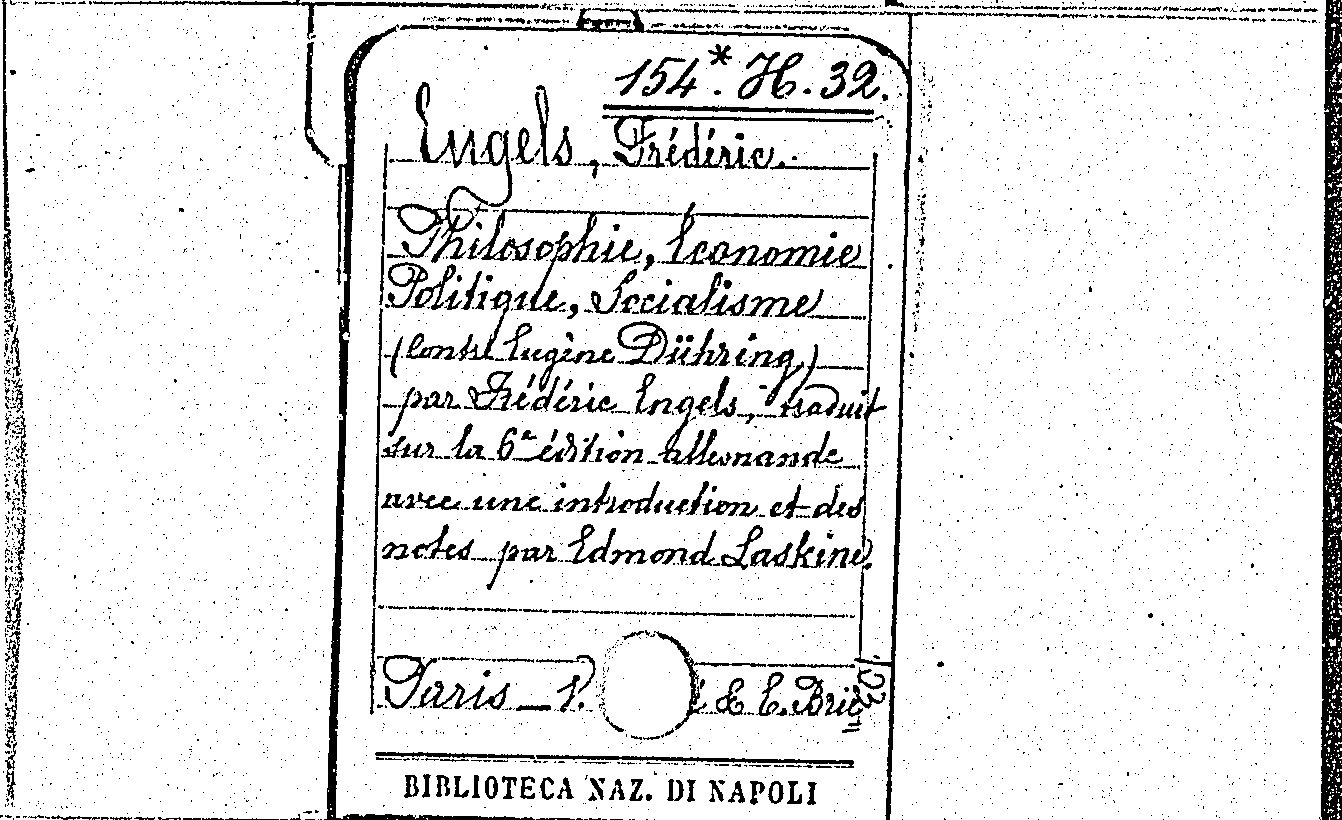 154*. H. 32.
Engels, Frédéric.
Philosophie, Économie
Politique, Socialisme
(Contre Eugène Dühring)
par Frédéric Engels; traduit
sur la 6e édition allemande
avec une introduction et des
notes par Edmond Laskine.
Paris _ & E. Briè
BIBLIOTECA NAZ. DI NAPOLI